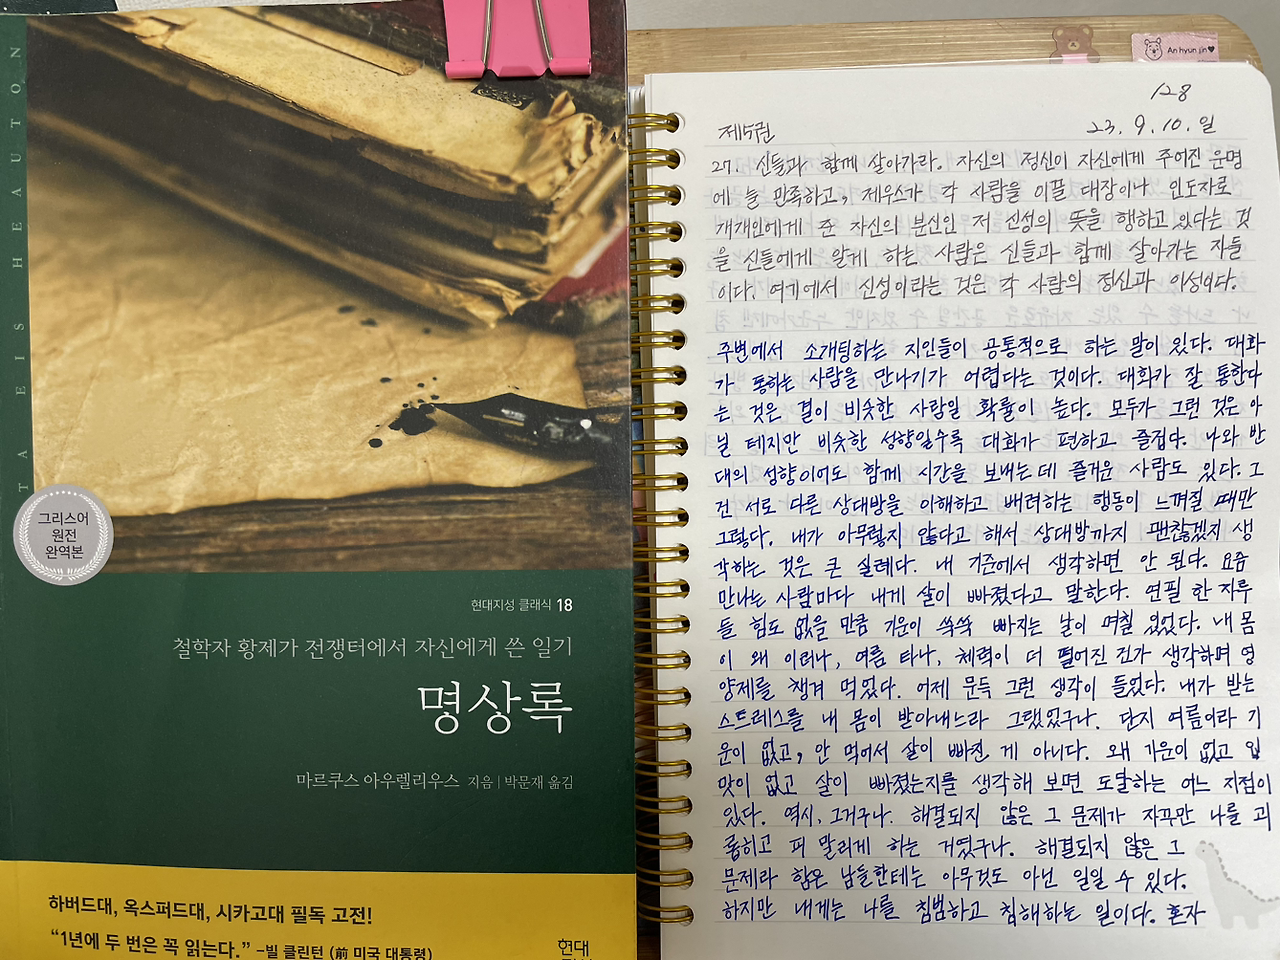 TA EIS HEAUTON
그리스어
원전
완역본
현대지성 클래식 18
철학자 황제가 전쟁터에서 자신에게 쓴 일기
명상록
마르쿠스 아우렐리우스 지음 | 박문재 옮김
하버드대, 옥스퍼드대, 시카고대 필독 고전!
“1년에 두 번은 꼭 읽는다.” –빌 클린턴 (前 미국 대통령)
현대
An hyun jin♥
128
제5권
23. 9. 10. 일
27. 신들과 함께 살아가라. 자신의 정신이 자신에게 주어진 운명
에 늘 만족하고, 제우스가 각 사람을 이끌 대장이나 인도자로
개개인에게 준 자신의 분신인 저 신성의 뜻을 행하고 있다는 것
을 신들에게 알게 하는 사람은 신들과 함께 살아가는 자들
이다. 여기에서 신성이라는 것은 각 사람의 정신과 이성이다.
주변에서 소개팅하는 지인들이 공통적으로 하는 말이 있다. 대화
가 통하는 사람을 만나기가 어렵다는 것이다. 대화가 잘 통한다
는 것은 결이 비슷한 사람일 확률이 높다. 모두가 그런 것은 아
닐 테지만 비슷한 성향일수록 대화가 편하고 즐겁다. 나와 반
대의 성향이어도 함께 시간을 보내는데 즐거운 사람도 있다. 그
건 서로 다른 상대방을 이해하고 배려하는 행동이 느껴질 때만
그렇다. 내가 아무렇지 않다고 해서 상대방까지 괜찮겠지 생
각하는 것은 큰 실례다. 내 기준에서 생각하면 안 된다. 요즘
만나는 사람마다 내게 살이 빠졌다고 말한다. 연필 한 자루
들 힘도 없을 만큼 기운이 쑥쑥 빠지는 날이 며칠 있었다. 내 몸
이 왜 이러나, 여름 타나, 체력이 더 떨어진 건가 생각하며 영
양제를 챙겨 먹었다. 어제 문득 그런 생각이 들었다. 내가 받는
스트레스를 내 몸이 받아내느라 그랬었구나. 단지 여름이라 기
운이 없고, 안 먹어서 살이 빠진 게 아니다. 왜 기운이 없고 입
맛이 없고 살이 빠졌는지를 생각해 보면 도달하는 어느 지점이
있다. 역시, 그거구나. 해결되지 않은 그 문제가 자꾸만 나를 괴
롭히고 피 말리게 하는 거였구나. 해결되지 않은 그
문제라 함은 남들한테는 아무것도 아닌 일일 수 있다.
하지만 내게는 나를 침범하고 침해하는 일이다. 혼자